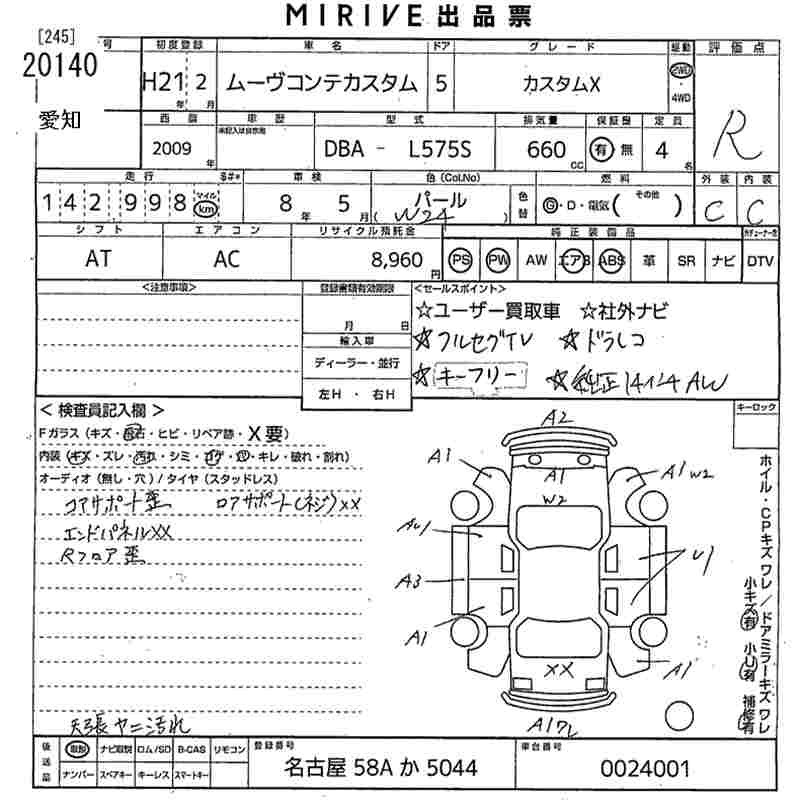 MIRIVE出品票
[245] 号 初度登録 車名 ドア グレード 駆動 評価点
20140 H21年 2月 ムーヴコンテカスタム 5 カスタムX 2WD・4WD R
愛知 西暦 車歴 型式 排気量 保証書 定員
未記入は自家用
2009年 DBA - L575S 660cc 有 無 4名
走行 $#* 車検 色(Col.No) 燃料 外装 内装
142998 マイル km 8年 5月 パール (W24) 色替 G・D・電気(その他) C C
シフト エアコン リサイクル預託金 純正装備品
AT AC 8,960円 PS PW AW エアB ABS 革 SR ナビ DTV
<注意事項> 登録書類有効期限 <セールスポイント>
月 日 ☆ユーザー買取車 ☆社外ナビ
輸入車 ☆フルセグTV ☆ドラレコ
ディーラー・並行 ☆キーフリー ☆純正14インチAW
左H ・ 右H
<検査員記入欄> キーロック
Fガラス(キズ・飛石・ヒビ・リペア跡・X要)
内装(キズ・ズレ・汚れ・シミ・コゲ・穴・キレ・破れ・割れ)
オーディオ(無し・穴)/タイヤ(スタッドレス)
コアサポート歪 ロアサポート(ネジ)XX
エンドパネルXX
Rフロア歪
天張ヤニ汚れ
A2
A1 A1 A1 W2
W2
AU1
A3 U1
A1 XX A1
A1ワレ
ホイル・CPキズ ワレ/ドアミラーキズ ワレ
小キズ有 小U有 補修有
後送品 取説 ナビ取説 ロム/SD B-CAS リモコン 登録番号 車台番号
ナンバー スペアキー キーレス スマートキー 名古屋 58A か 5044 0024001